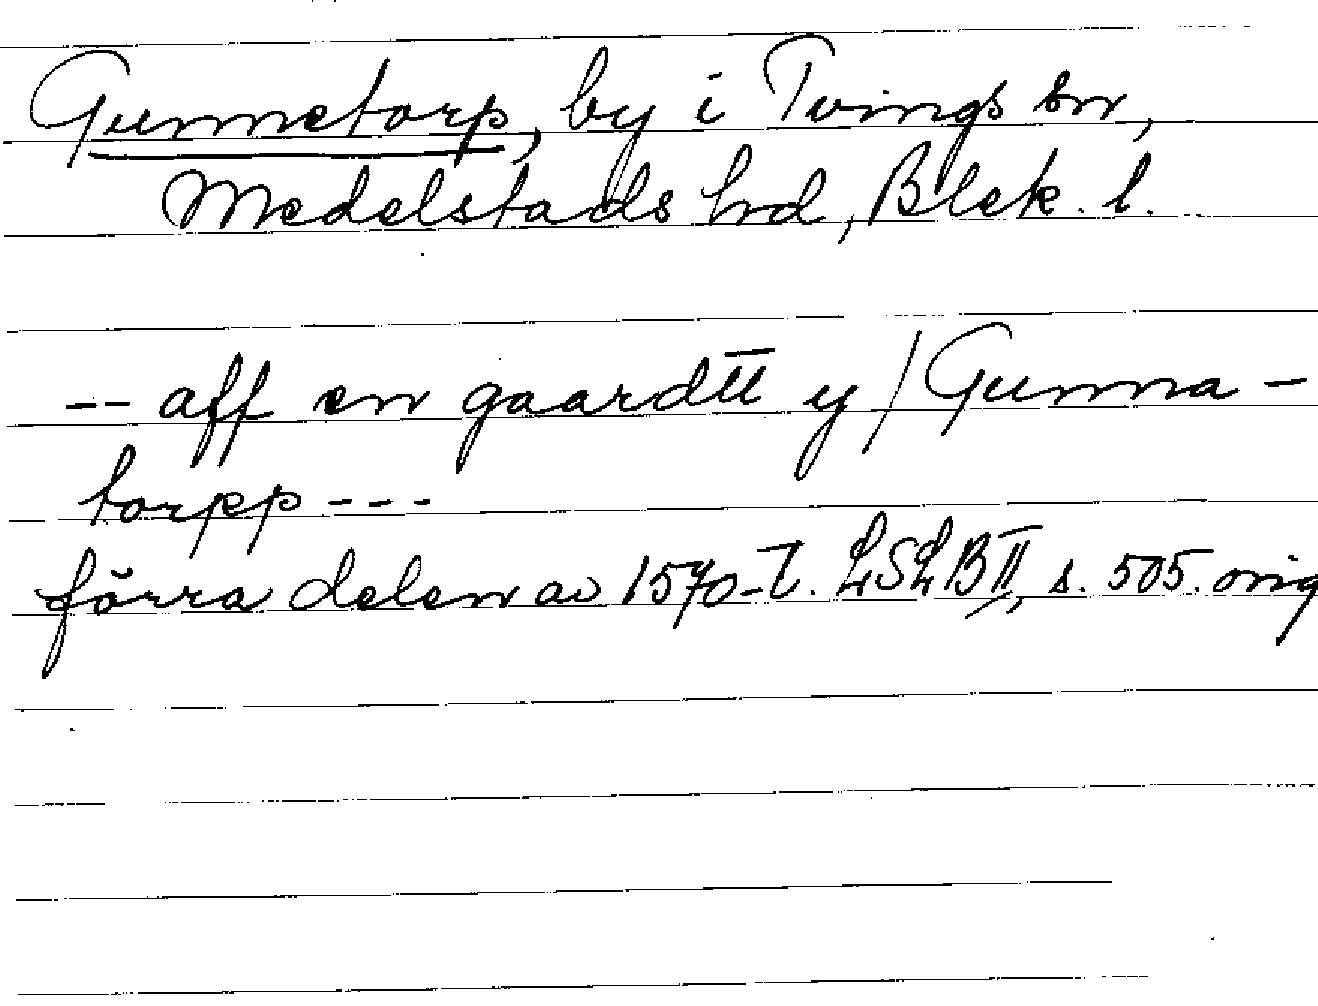 Gunnetorp, by i Tvings sn,
Medelstads hrd, Blek. l.
-- aff en gaardtt y / Gunna-
torpp ---
förra delen av 1570-t. LSLB II, s. 505. orig